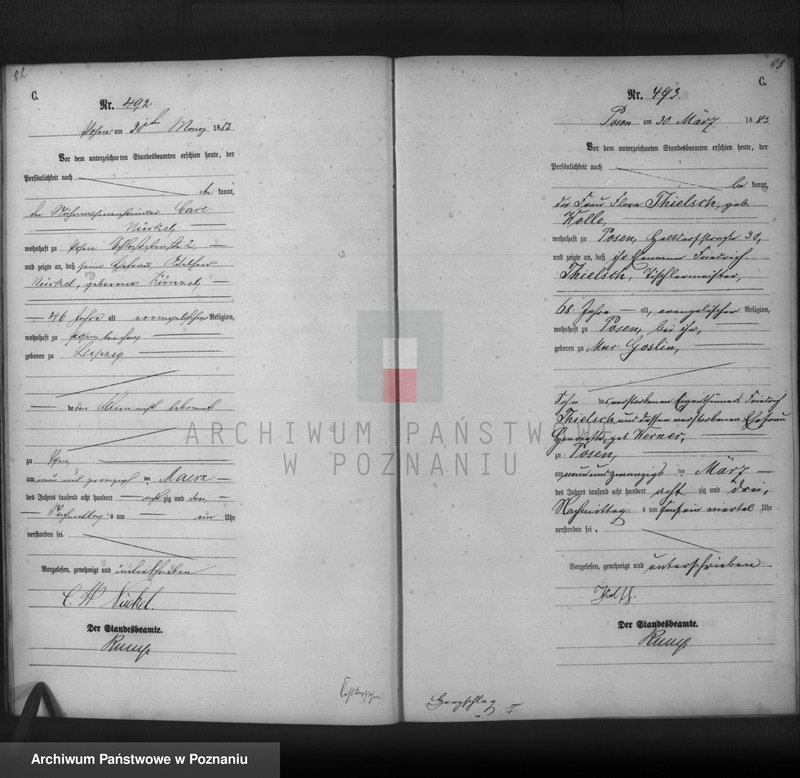 C.
Nr. 492
Posen am 30ten März 1883
Vor dem unterzeichneten Standesbeamten erschien heute, der
Persönlichkeit nach
kannt,
der Carl
Nückel
wohnhaft zu Posen 2,
und zeigte an, daß seine Ehefrau,
Nückel, geborene Künzel
46 Jahre alt evangelischer Religion,
wohnhaft zu Posen bei ihm
geboren zu Leipzig
deren Eltern nicht bekannt
zu Posen
am neun und zwanzigsten Maerz
des Jahres tausend acht hundert achtzig und drei
Nachmittag s um ein Uhr
verstorben sei.
Vorgelesen, genehmigt und unterschrieben
Nückel.
Der Standesbeamte.
Rump
23
C.
Nr. 493.
Posen am 30 März 1883
Vor dem unterzeichneten Standesbeamten erschien heute, der
Persönlichkeit nach
be kannt,
die Frau Flora Thielsch, geb.
Wolle,
wohnhaft zu Posen, Halbdorfstraße 30,
und zeigte an, daß ihr Ehemann Friedrich
Thielsch, Tischlermeister,
68 Jahre alt, evangelischer Religion,
wohnhaft zu Posen, bei ihr,
geboren zu Mur: Goslin,
Sohn des verstorbenen Eigenthümers Friedrich
Thielsch und dessen verstorbenen Ehefrau
Henriette, geb. Werner,
zu Posen,
am neunundzwanzigsten März
des Jahres tausend acht hundert acht zig und drei,
Nachmittag s um viertel Uhr
verstorben sei.
Vorgelesen, genehmigt und unterschrieben
Der Standesbeamte.
Rump
ARCHIWUM PAŃSTWOWE
W POZNANIU
Archiwum Państwowe w Poznaniu